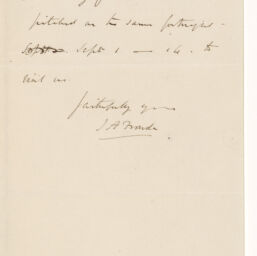 pitched on the same fortnight -
Sept. Sept 1 — 14. to
visit us
faithfully yours
J A Froude